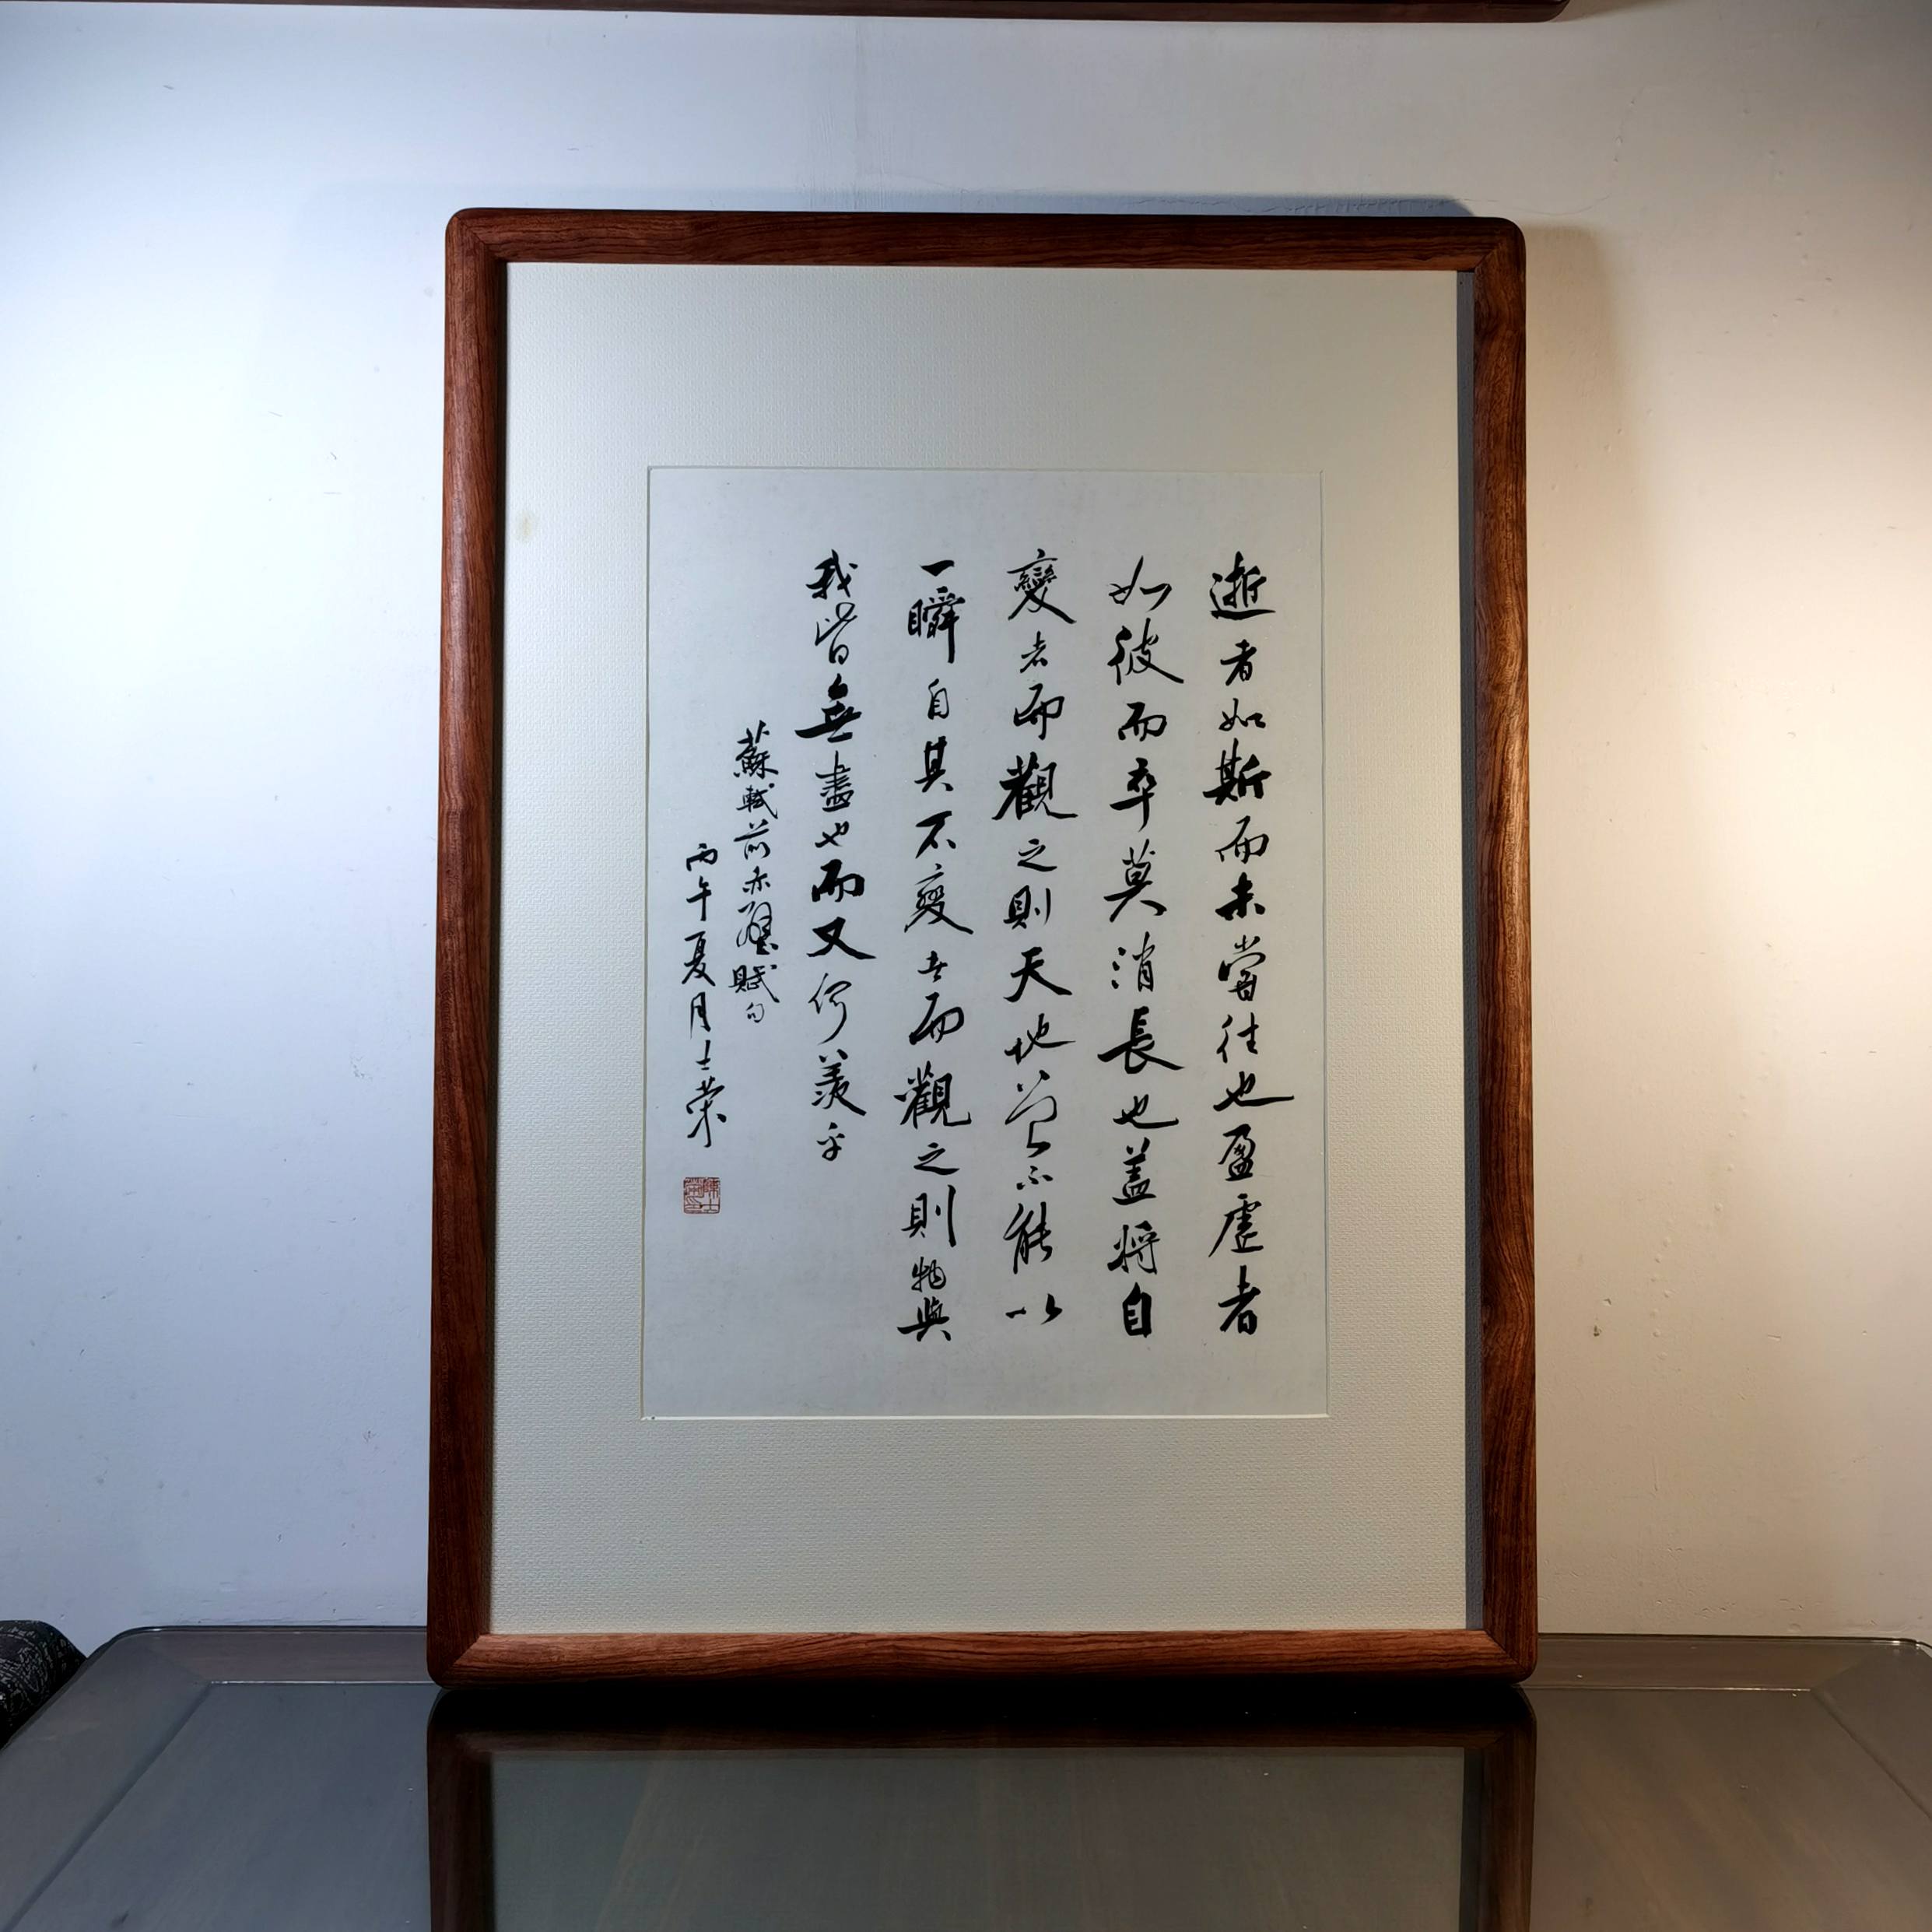 逝者如斯而未嘗往也盈虛者
如彼而卒莫消長也盖将自
變者而觀之則天地曾不能以
一瞬自其不變者而觀之則物與
我皆無盡也而又何羨乎
蘇軾前赤壁賦句
丙午夏月士榮